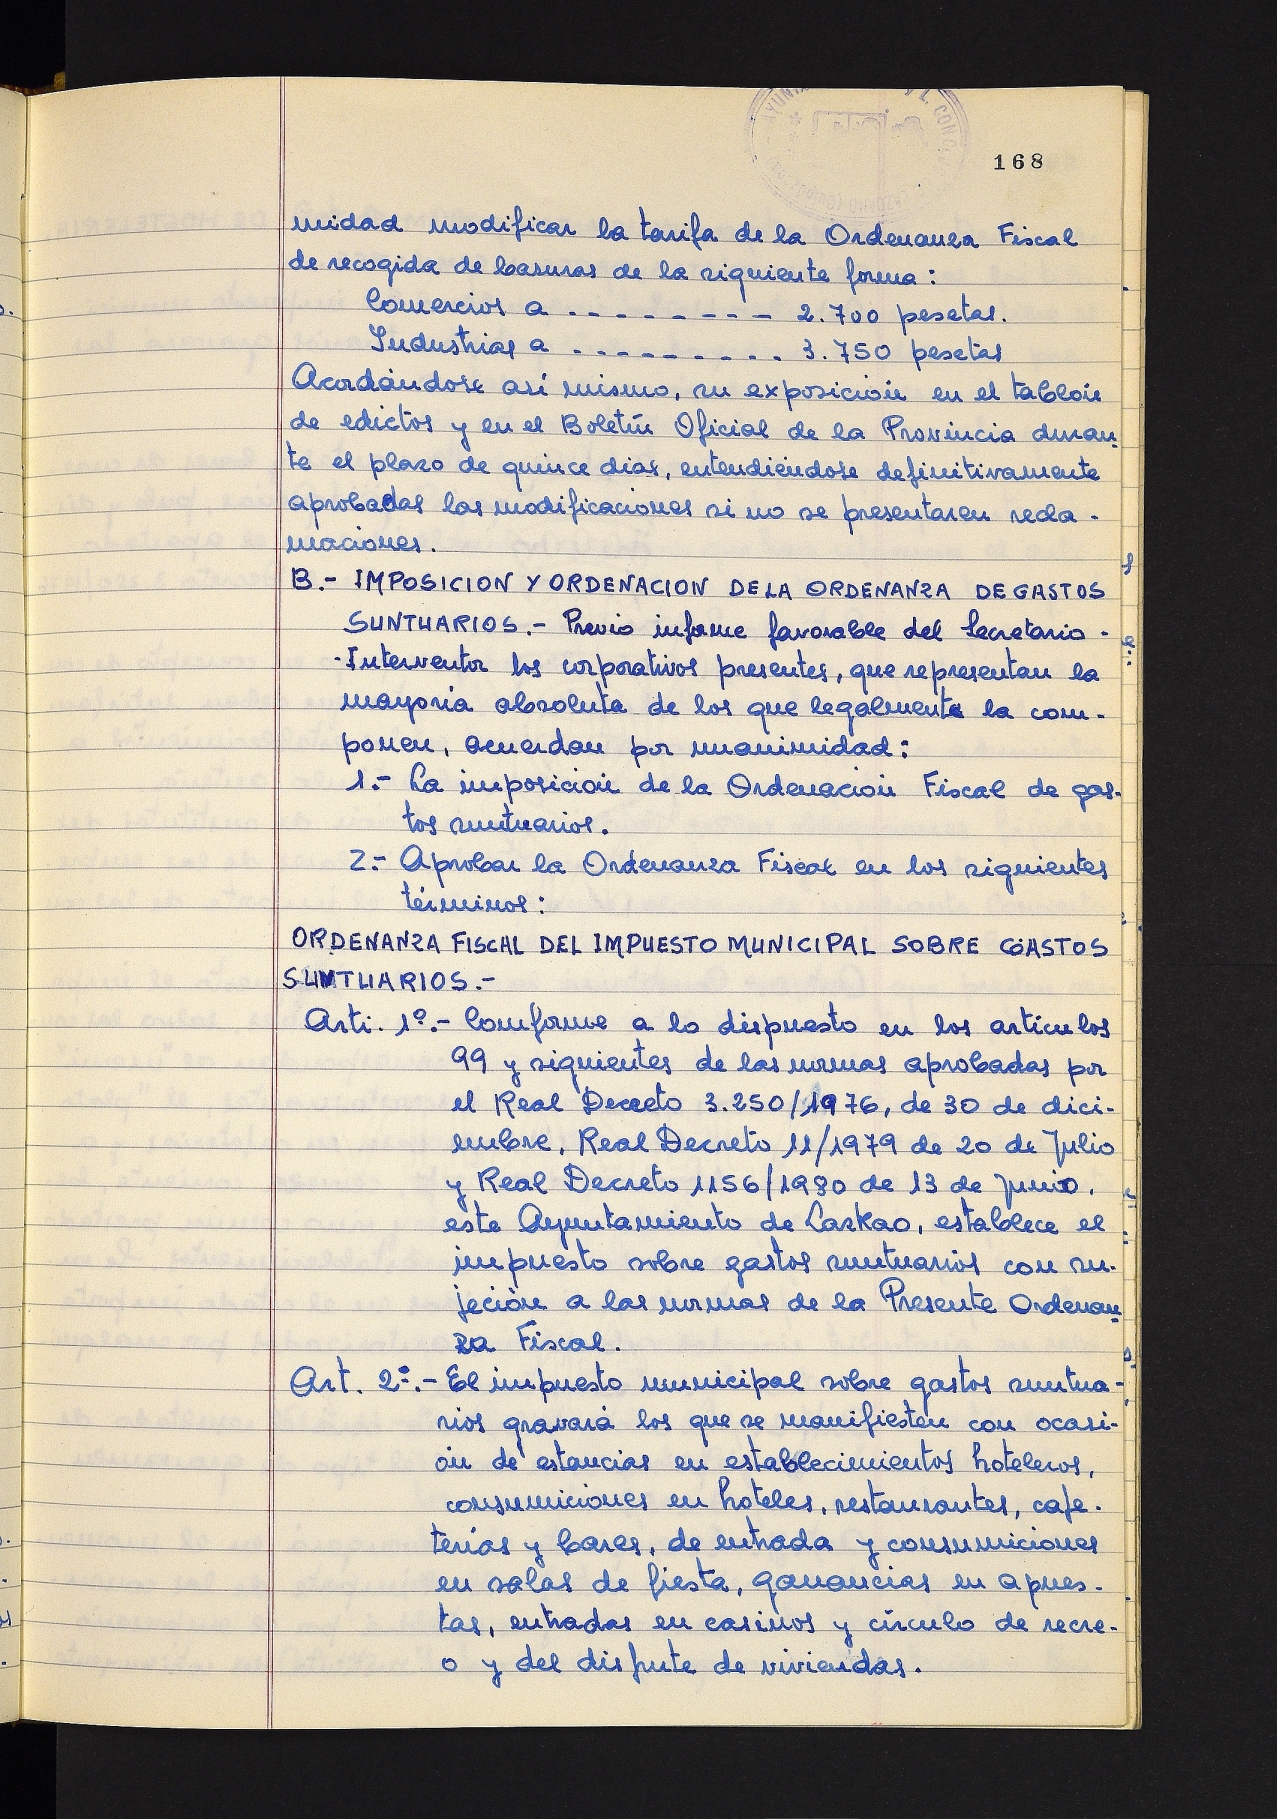 168
nidad modificar la tarifa de la Ordenanza Fiscal
de recogida de basuras de la siguiente forma:
Comercios a . - - - - - - - - 2.700 pesetas.
Industrias a . - - - - - - - . 3.750 pesetas
Acordándose así mismo, su exposición en el tablón
de edictos y en el Boletín Oficial de la Provincia duran-
te el plazo de quince dias, entendiéndose definitivamente
aprobadas las modificaciones si no se presentaren recla-
maciones.
B.- IMPOSICION Y ORDENACION DE LA ORDENANZA DE GASTOS
SUNTUARIOS.- Previo informe favorable del Secretario -
-Interventor los corporativos presentes, que representan la
mayoría absoluta de los que legalmente la com-
ponen, acuerdan por unanimidad:
1.- La imposición de la Ordenación Fiscal de gas-
tos suntuarios.
2.- Aprobar la Ordenanza Fiscal en los siguientes
términos:
ORDENANZA FISCAL DEL IMPUESTO MUNICIPAL SOBRE GASTOS
SUNTUARIOS.-
Arti. 1º.- Conforme a lo dispuesto en los artículos
99 y siguientes de las normas aprobadas por
el Real Decreto 3.250/1976, de 30 de dici-
embre, Real Decreto 11/1979 de 20 de Julio
y Real Decreto 1156/1980 de 13 de Junio,
este Ayuntamiento de Lazkao, establece el
impuesto sobre gastos suntuarios con su-
jeción a las normas de la Presente Ordenan-
za Fiscal.
Art. 2º.- El impuesto municipal sobre gastos suntua-
rios gravará los que se manifiesten con ocasi-
ón de estancias en establecimientos hoteleros,
consumiciones en hoteles, restaurantes, cafe-
terías y bares, de entrada y consumiciones
en salas de fiesta, ganancias en apues-
tas, entradas en casinos y círculo de recre-
o y del disfrute de viviendas.